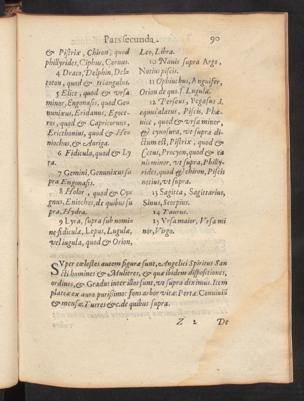 Pars secunda. 90
& Pistrix, Chiron, quod
phillyrides, Ciphus, Coruus.
4 Draco, Delphin, Del-
toton, quod & triangulus.
5 Elice, quod & vrsa
minor, Engonasis, quod Gen
nunixus, Eridanus, Egoce-
ros, quod & Capricornus,
Ericthonius, quod & He-
niochus, & Auriga.
6 Fidicula, quod & Ly
ra.
7 Gemini, Genunixus su
pra Engonasis.
8 Hedus, quod & Cy-
gnus, Eniochus, de quibus su
pra, Hydra.
9 Lyra, supra sub nomi
ne fidiculæ, Lepus, Lugula,
vel iugula, quod & Orion,
Leo, Libra.
10 Nauis supra Argo,
Notius piscis.
11 Ophiuchus, Anguifer,
Orion de quo s. Lugula.
12 Perseus, Pegasus s.
equus alatus, Piscis, Phæ-
nice, quod & vrsa minor,
& cynosura, vt supra di-
ctum est, Pistrix, quod &
Cetus, Procyon, quod & ca
nis minor, vt supra, Philly-
rides, quod & chiron, Piscis
notius, vt supra.
13 Sagitta, Sagittarius,
Sirius, Scorpius.
14 Taurus.
15 Vrsa maior, Vrsa mi
nor, Virgo.
SVper cœlestes autem figuræ sunt, Angelici Spiritus San
cti homines & Mulieres, & quæ ibidem dispositiones,
ordines, & Gradus inter illos sunt, vt supra diximus. Item
plateæ ex auro purissimo: fons arbor vitæ: Portæ: Conuiuiū
& mensæ: Turres &c. de quibus supra.
Z 2 De